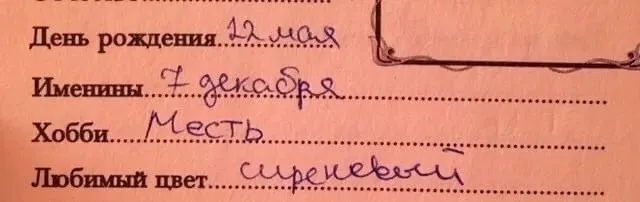 День рождения 12 мая
Именины 7 декабря
Хобби Месть
Любимый цвет сиреневый